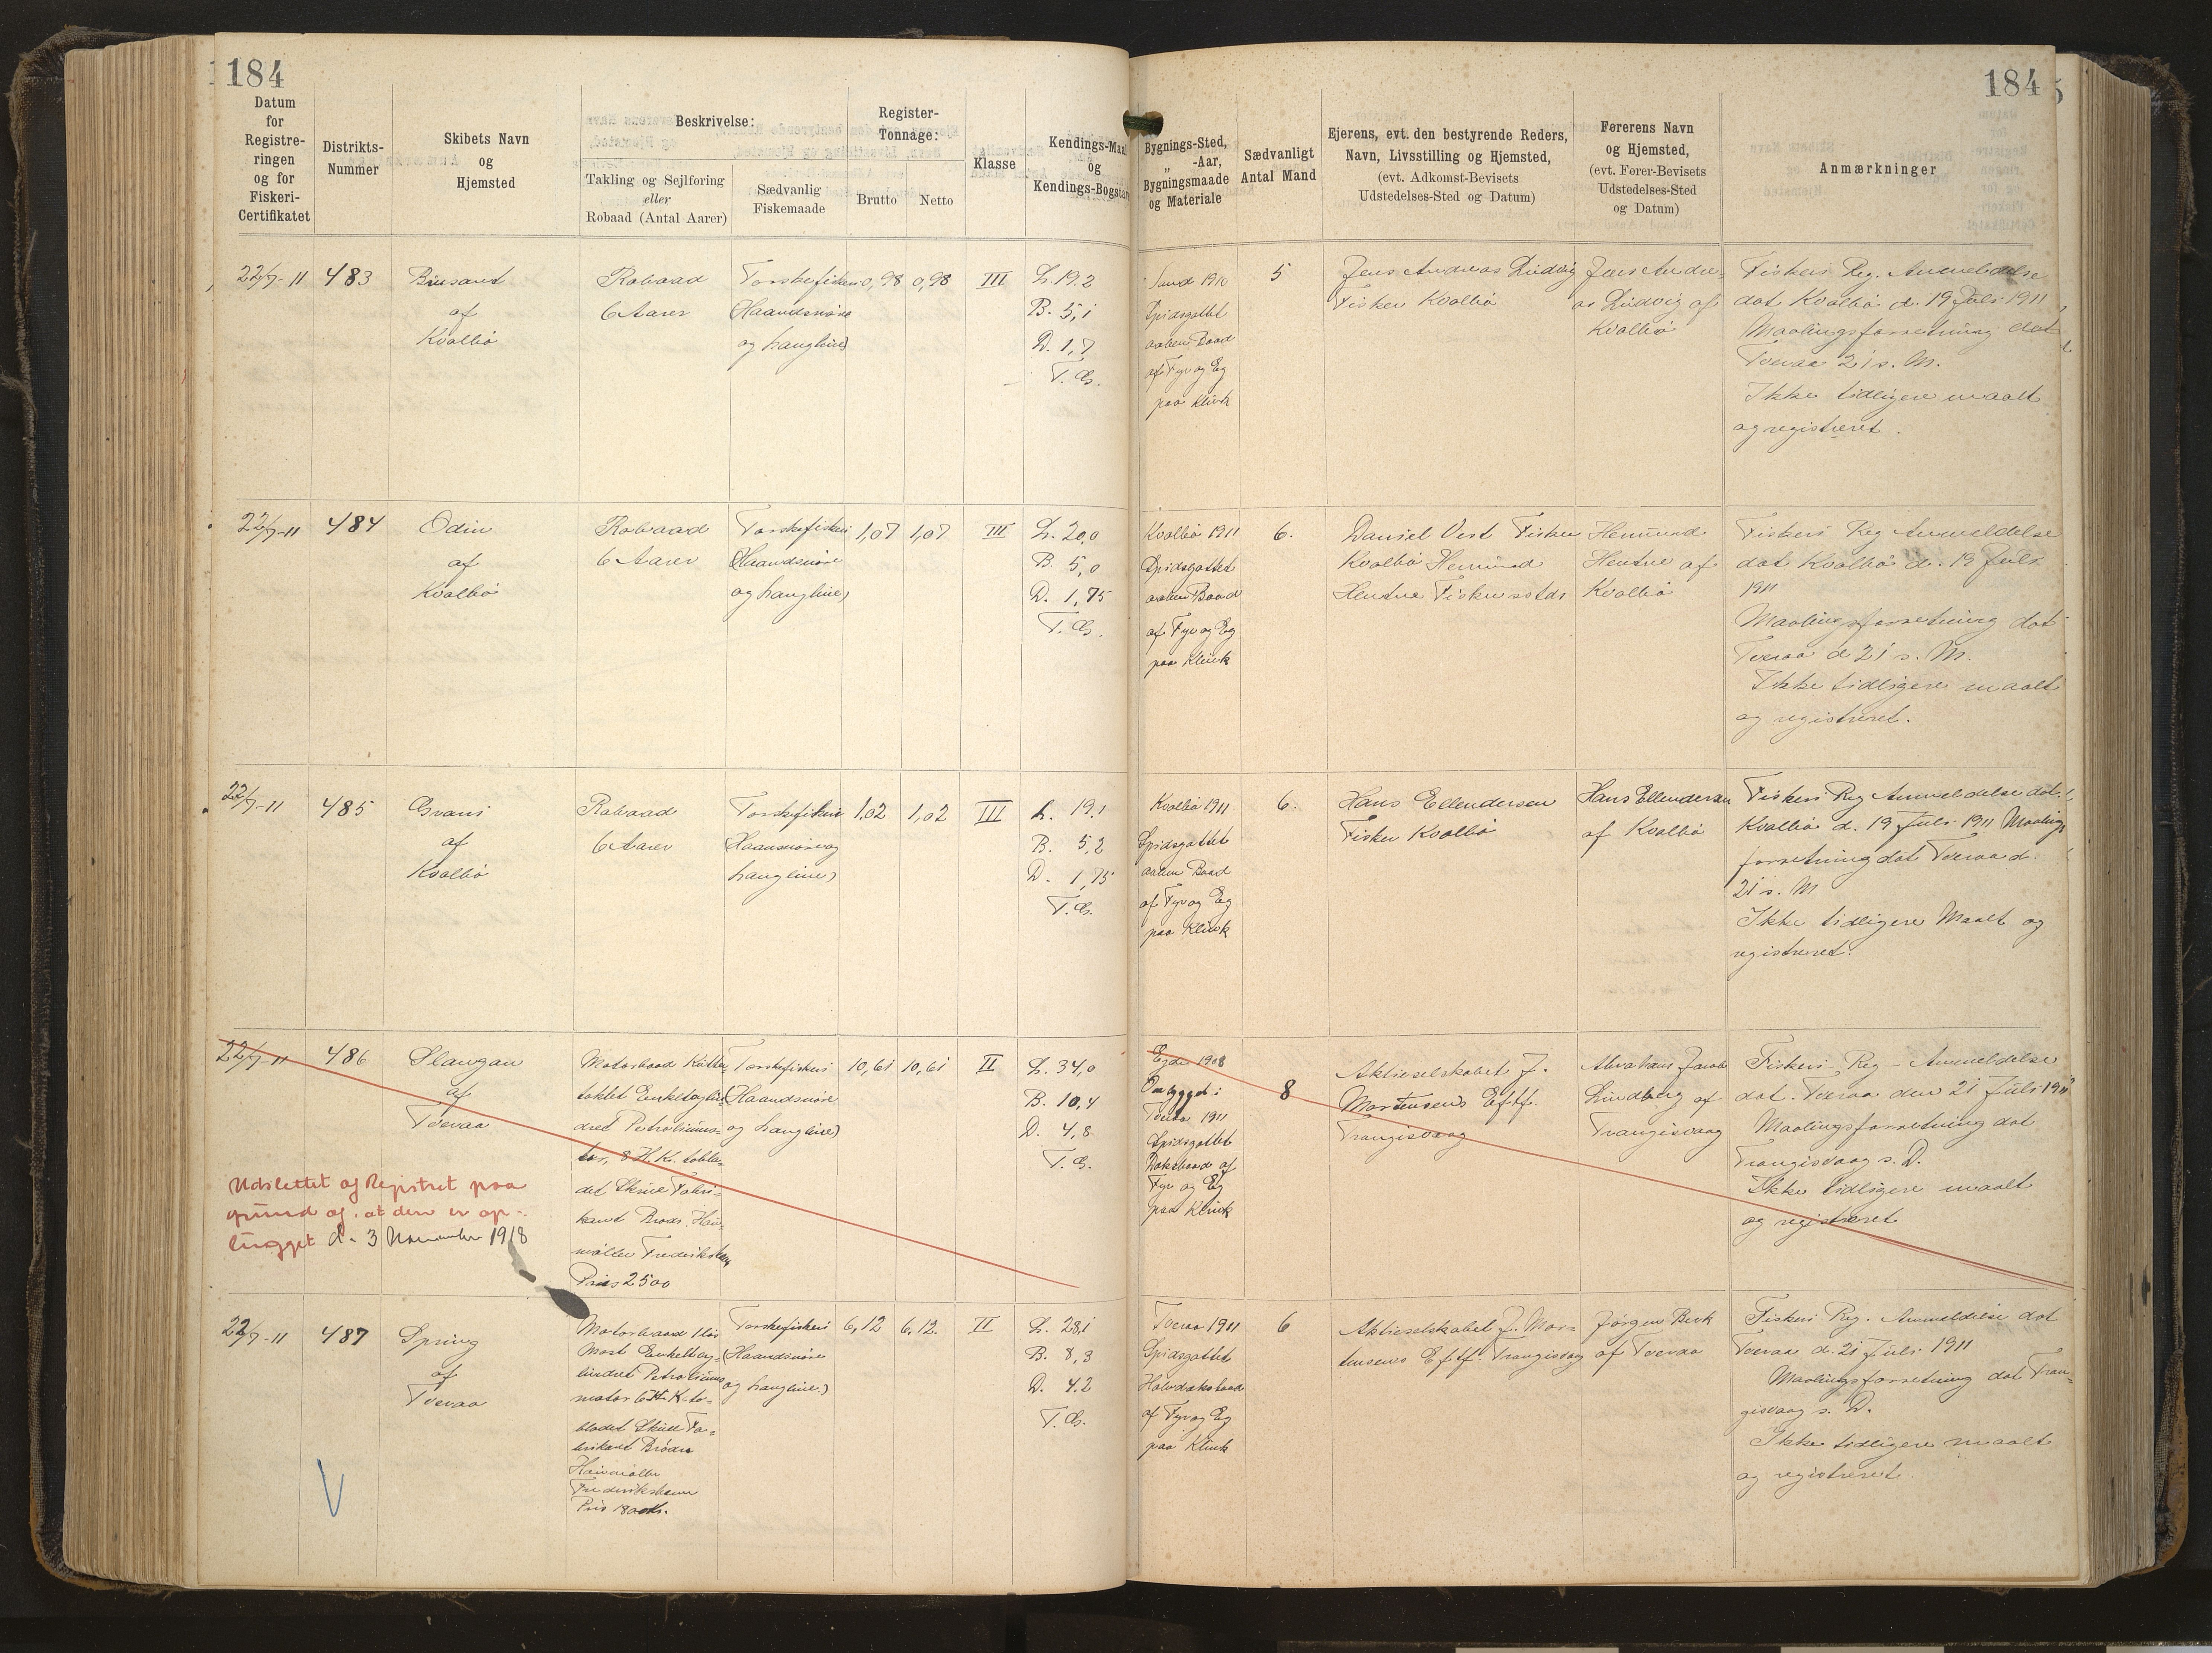 184
Datum
for
Registre-
ringen
og for
Fiskeri-
Certifikatet
Distrikts-
Nummer
Skibets Navn
og
Hjemsted
Beskrivelse:
Takling og Sejlføring
eller
Robaad (Antal Aarer)
Sædvanlig
Fiskemaade
Register-
Tonnage:
Brutto
Netto
Klasse
Kendings-Maal
og
Kendings-Bogstav
22/7-11
483
af
Kvalbö
Robaad
6 Aarer
Torskefiskeri
(Haandsnöre
og Langline)
0,98
0,98
III
L. 19.2
B. 5,1
D. 1,7
T. G.
22/7-11
484
Odin
af
Kvalbö
Robaad
6 Aarer
Torskefiskeri
(Haandsnöre
og Langline)
1,07
1,07
III
L. 20,0
B. 5,0
D. 1,75
T. G.
22/7-11
485
Grani
af
Kvalbö
Robaad
6 Aarer
Torskefiskeri
(Haandsnöre og
Langline)
1,02
1,02
III
L. 19.1
B. 5,2
D. 1,75
T. G.
22/7-11
486
Slangan
af
Tveraa
Motorbaad Kutter-
taklet Enkeltcylin-
dret Petroliumsmo-
tor, 8 H.K. tobla-
det Skrue Fabri-
kant Brdr. Hou-
möller Frederikshavn
Pris 2500
Torskefiskeri
(Haandsnöre
og Langline)
10,61
10,61
II
L. 34,0
B. 10,4
D. 4,8
T. G.
Udslettet af Registret paa
grund af, at den er op-
lugget d. 3 November 1918
22/7-11
487
Spring
af
Tveraa
Motorbaad 1 lös
Mast Enkeltcy-
lindret Petroliums
motor 6 H. K. to-
bladet Skrue Fa-
brikant Brödre
Houmöller
Frederikshavn
Pris 1800 Kr.
Torskefiskeri
(Haandsnöre
og Langline)
6,12
6,12
II
L. 28,1
B. 8,3
D. 4.2
T. G.
V
184
Bygnings-Sted,
-Aar,
„
Bygningsmaade
og Materiale
Sædvanligt
Antal Mand
Ejerens, evt. den bestyrende Reders,
Navn, Livsstilling og Hjemsted,
(evt. Adkomst-Bevisets
Udstedelses-Sted og Datum)
Førerens Navn
og Hjemsted,
(evt. Fører-Bevisets
Udstedelses-Sted
og Datum)
Anmærkninger
Sand 1910
Spidsgattet
aaben Baad
af Fyr og Eg
paa Klink
5
Jens Andreas Ludvig
Fisker Kvalbö
Jens Andre-
as Ludvig af
Kvalbö
Fiskeri Reg. Anmeldelse
dat Kvalbö d. 19 Juli 1911
Maalingsforretning dat
Tveraa 21 s. M.
Ikke tidligere maalt
og registreret.
Kvalbö 1911
Spidsgattet
aaben Baad
af Fyr og Eg
paa Klink
6.
Daniel Vest Fisker
Kvalbö Hemund
Hentze Fisker sstds
Hemund
Hentze af
Kvalbö
Fiskeri Reg Anmeldelse
dat Kvalbö d. 19 Juli
1911
Maalingsforretning dat
Tveraa d 21 s. M.
Ikke tidligere maalt
og registreret.
Kvalbö 1911
Spidsgattet
aaben Baad
af Fyr og Eg
paa Klink
6.
Hans Ellendersen
Fisker Kvalbö
Hans Ellendersen
af Kvalbö
Fiskeri Reg Anmeldelse dat.
Kvalbö d. 19 Juli 1911 Maalings
forretning dat Tveraa d.
21 s. M
Ikke tidligere Maalt og
registreret.
Egde 1908
Ombygget i
Tveraa 1911
Spidsgattet
Dæksbaad af
Fyr og Eg
paa Klink
8
Aktieselskabet J.
Mortensens Eftf.
Trangisvaag
Abraham Jacob
Lindberg af
Trangisvaag
Fiskeri Reg - Anmeldelse
dat. Tveraa den 21 Juli 1911
Maalingsforretning dat
Trangisvaag s. D.
Ikke tidligere maalt
og registreret
Tveraa 1911
Spidsgattet
Halvdæksbaad
af Fyr og Eg
paa Klink
6
Aktieselskabet J. Mor-
tensens Eftf. Trangisvaag
Jørgen Berk
af Tveraa
Fiskeri Reg. Anmeldelse dat
Tveraa d. 21 Juli 1911
Maalingsforretning dat Tran-
gisvaag s. D.
Ikke tidligere maalt
og registreret